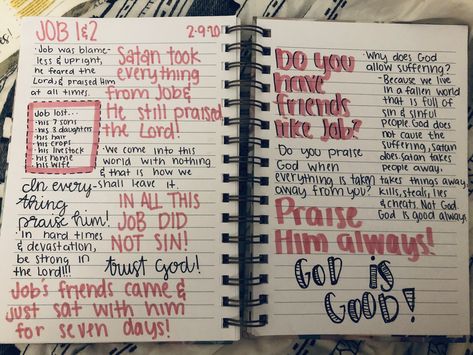 JOB 1&2
2-9-20
· Job was blame-
less & upright,
he feared the
Lord, & praised Him
at all times.
Satan took
everything
from Job &
He still praised
the Lord!
Job lost...
· his 7 sons
· his 3 daughters
· his hair
· his crops
· his livestock
· his home
· his wife
· We come into this
world with nothing
& that is how we
shall leave it.
In every-
thing
praise him!
· In hard times
& devastation,
be strong in
the Lord!!!
IN ALL THIS
JOB DID
NOT SIN!
trust God!
Job's friends came &
just sat with him
for seven days!
Do you
have
friends
like Job?
· Do you praise
God when
everything is taken
away from you?
· Why does God
allow suffering?
- Because we live
in a fallen world
that is full of
sin & sinful
people. God does
not cause the
suffering, Satan
does. Satan takes
people away,
takes things away,
kills, steals, lies
& cheats. Not God.
God is good always.
Praise
Him always!
GOD IS
GOOD!